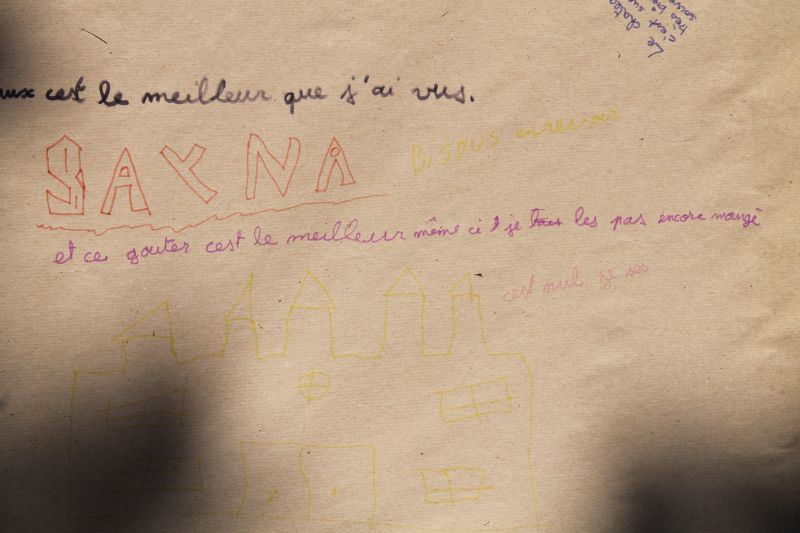 Le chateau
c'est
très
aux cest le meilleur que j'ai vus.
SAYNA
BiSOUS
et ce gouter cest le meilleur même ci je les pas encore mangé
cest nul je ses